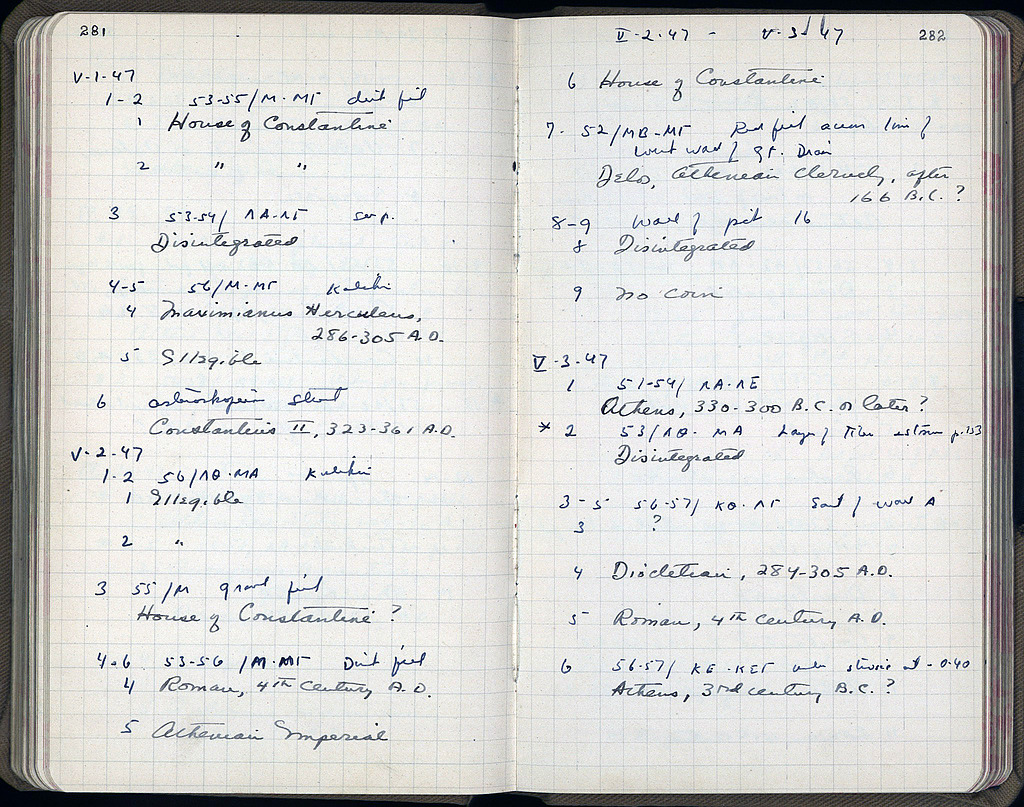 281
V-1-47
1-2 53-55/M-MΣΤ
1 House of Constantine
2 " "
3 53-54/ ΛΑ-ΛΣΤ
Disintegrated
4-5 56/M-MΣΤ
4 Maximianus Herculeus,
286-305 A.D.
5 Illegible
6
Constantius II, 323-361 A.D.
V-2-47
1-2 56/ΛΘ-MA
1 Illegible
2 "
3 55/M
House of Constantine ?
4-6 53-56/M-MΣΤ
4 Roman, 4th century A.D.
5 Athenian Imperial
V-2-47 - V-3-47 282
6 House of Constantine
7. 52/MB-MΣΤ Red fill
west wall of Gt. Drain
Delos, Athenian Cleruchy, after
166 B.C. ?
8-9 pit 16
8 Disintegrated
9 no coin
V-3-47
1 51-54/ ΛΑ-ΛΕ
Athens, 330-300 B.C. or later ?
* 2 53/ΛΘ-MA Layer of p.153
Disintegrated
3-5 56-57/ ΚΘ-ΛΣΤ wall A
3 ?
4 Diocletian, 284-305 A.D.
5 Roman, 4th century A.D.
6 56-57/ ΚΕ-ΚΣΤ at -0.40
Athens, 3rd century B.C. ?